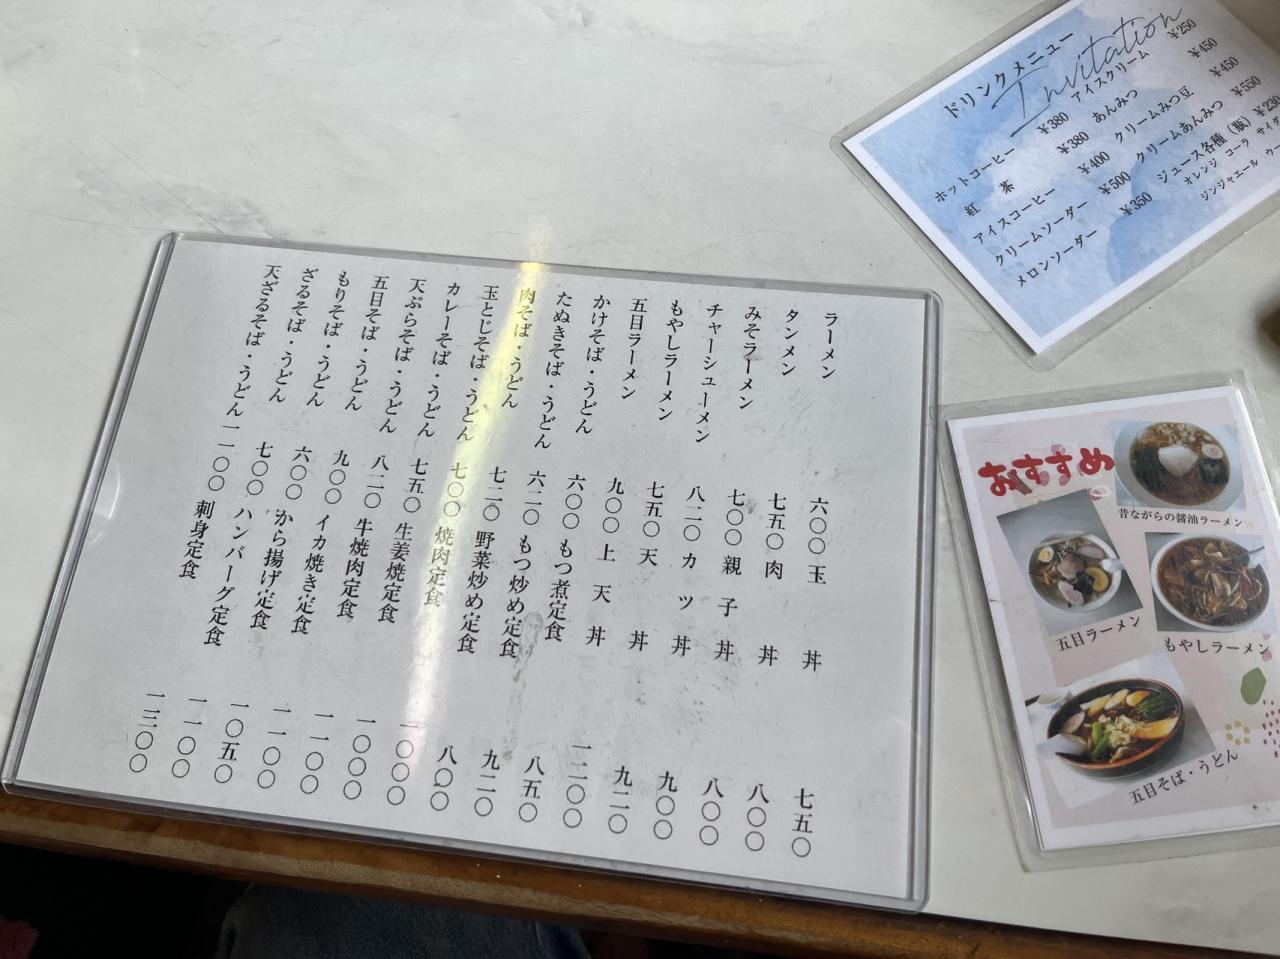 ラーメン 六〇〇 玉丼 七五〇
タンメン 七五〇 肉丼 八〇〇
みそラーメン 七〇〇 親子丼 八〇〇
チャーシューメン 八二〇 カツ丼 九〇〇
もやしラーメン 七五〇 天丼 九二〇
五目ラーメン 九〇〇 上天丼 一二〇〇
かけそば・うどん 六〇〇 もつ煮定食 八五〇
たぬきそば・うどん 六二〇 もつ炒め定食 九二〇
肉そば・うどん 七二〇 野菜炒め定食 八〇〇
玉とじそば・うどん 七〇〇 焼肉定食 一〇〇〇
カレーそば・うどん 七五〇 生姜焼定食 一〇〇〇
天ぷらそば・うどん 八二〇 牛焼肉定食 一一〇〇
五目そば・うどん 九〇〇 イカ焼き定食 一一〇〇
もりそば・うどん 六〇〇 から揚げ定食 一〇五〇
ざるそば・うどん 七〇〇 ハンバーグ定食 一一〇〇
天ざるそば・うどん 一一〇〇 刺身定食 一三〇〇
ドリンクメニュー
Invitation
ホットコーヒー ¥380 アイスクリーム ¥250
紅茶 ¥380 あんみつ ¥450
アイスコーヒー ¥400 クリームみつ豆 ¥450
クリームソーダー ¥500 クリームあんみつ ¥550
メロンソーダー ¥350 ジュース各種(瓶) ¥230
オレンジ コーラ サイダ
ジンジャエール ウー
おすすめ
昔ながらの醤油ラーメン
五目ラーメン
もやしラーメン
五目そば・うどん